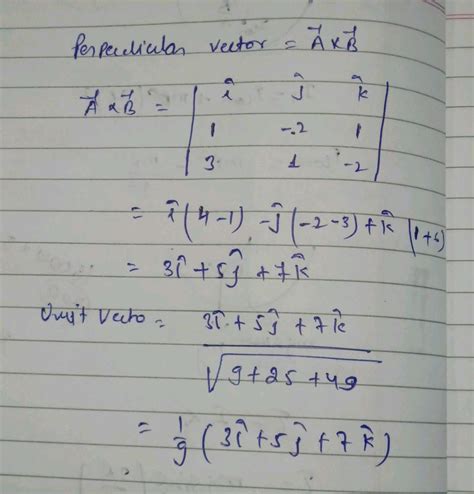 Perpendicular vector = A⃗ x B⃗
A⃗ x B⃗ = | î ĵ k̂ |
| 1 -2 1 |
| 3 1 -2 |
= î (4-1) -ĵ (-2-3) + k̂ (1+6)
= 3î + 5ĵ + 7k̂
Unit vecto = 3î + 5ĵ + 7k̂
√9+25+49
= 1/9 (3î + 5ĵ + 7k̂)